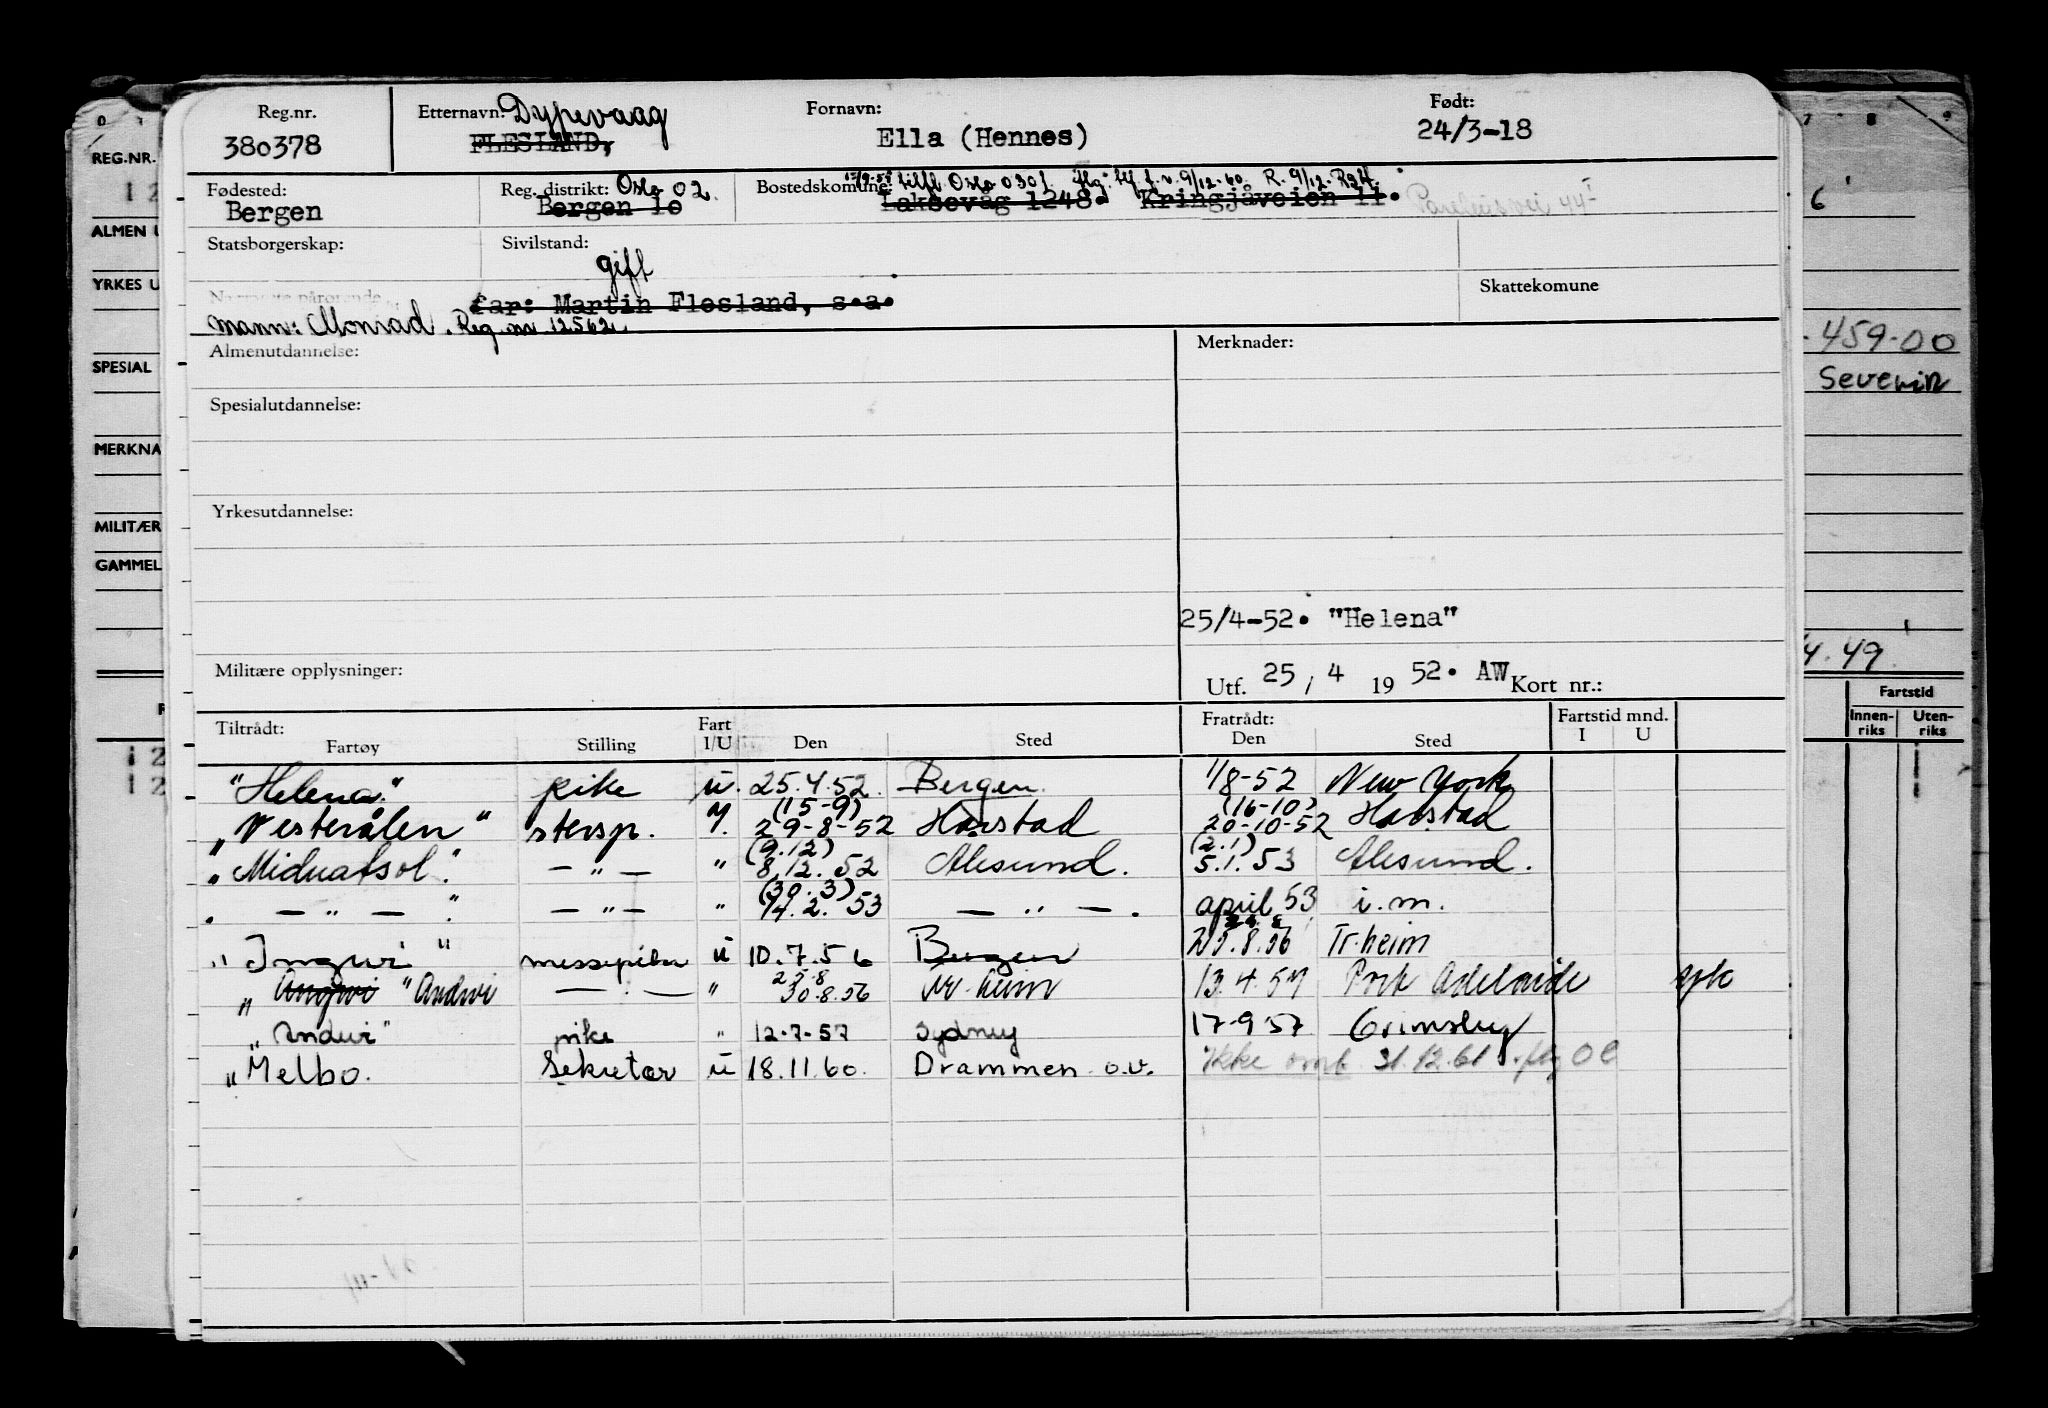 Reg.nr. Etternavn: Dypevaag Fornavn: Født:
380378 FLESLAND, Ella (Hennes) 24/3-18
Fødested: Reg. distrikt: Oslo 02. Bostedskommune: tilfl. Oslo 0301.
Bergen Bergen 10 Laksevåg 1248. Kringjåveien 11.
Statsborgerskap: Sivilstand:
gift
Skattekomune
far: Martin Flesland, s.a.
mann: Monrad. Reg. nr. 12562
Almenutdannelse: Merknader:
Spesialutdannelse:
Yrkesutdannelse:
25/4-52. "Helena"
Militære opplysninger:
Utf. 25 / 4 19 52. AW Kort nr.:
Tiltrådt: Fart Fratrådt: Fartstid mnd.
Fartøy Stilling I/U Den Sted Den Sted I U
"Helena" pike u. 25.4.52. Bergen. 1/8-52 New York
(15-9) (16-10)
"Vesterålen" stersp. I. 29-8-52 Harstad 20-10-52 Harstad
(9.12) (2.1)
"Midnatsol". — " — " 8.12.52 Alesund. 5.1.53 Alesund.
(30.3)
— " — ". — " — " 4.2.53 — " —. april 53 i.m.
"Ingwi" messepike u 10.7.56 Bergen 25.8.56 Tr.heim
25.8
"Angwi "Andwi — . — " 30.8.56 Tr heim 13.4.57 Port Adelaide syk
"Andwi" pike " 12-7-57 Sydney 17-9 57 Grimsby
"Melbo. Sekretær u 18.11.60. Drammen o.v. Ikke omb. 31.12.61.
REG.NR.
ALMEN U
YRKES U
SPESIAL
MERKNA
MILITÆR
GAMMEL
6
459-00
Severin
4.49.
Fartstid
Innen-riks Uten-riks